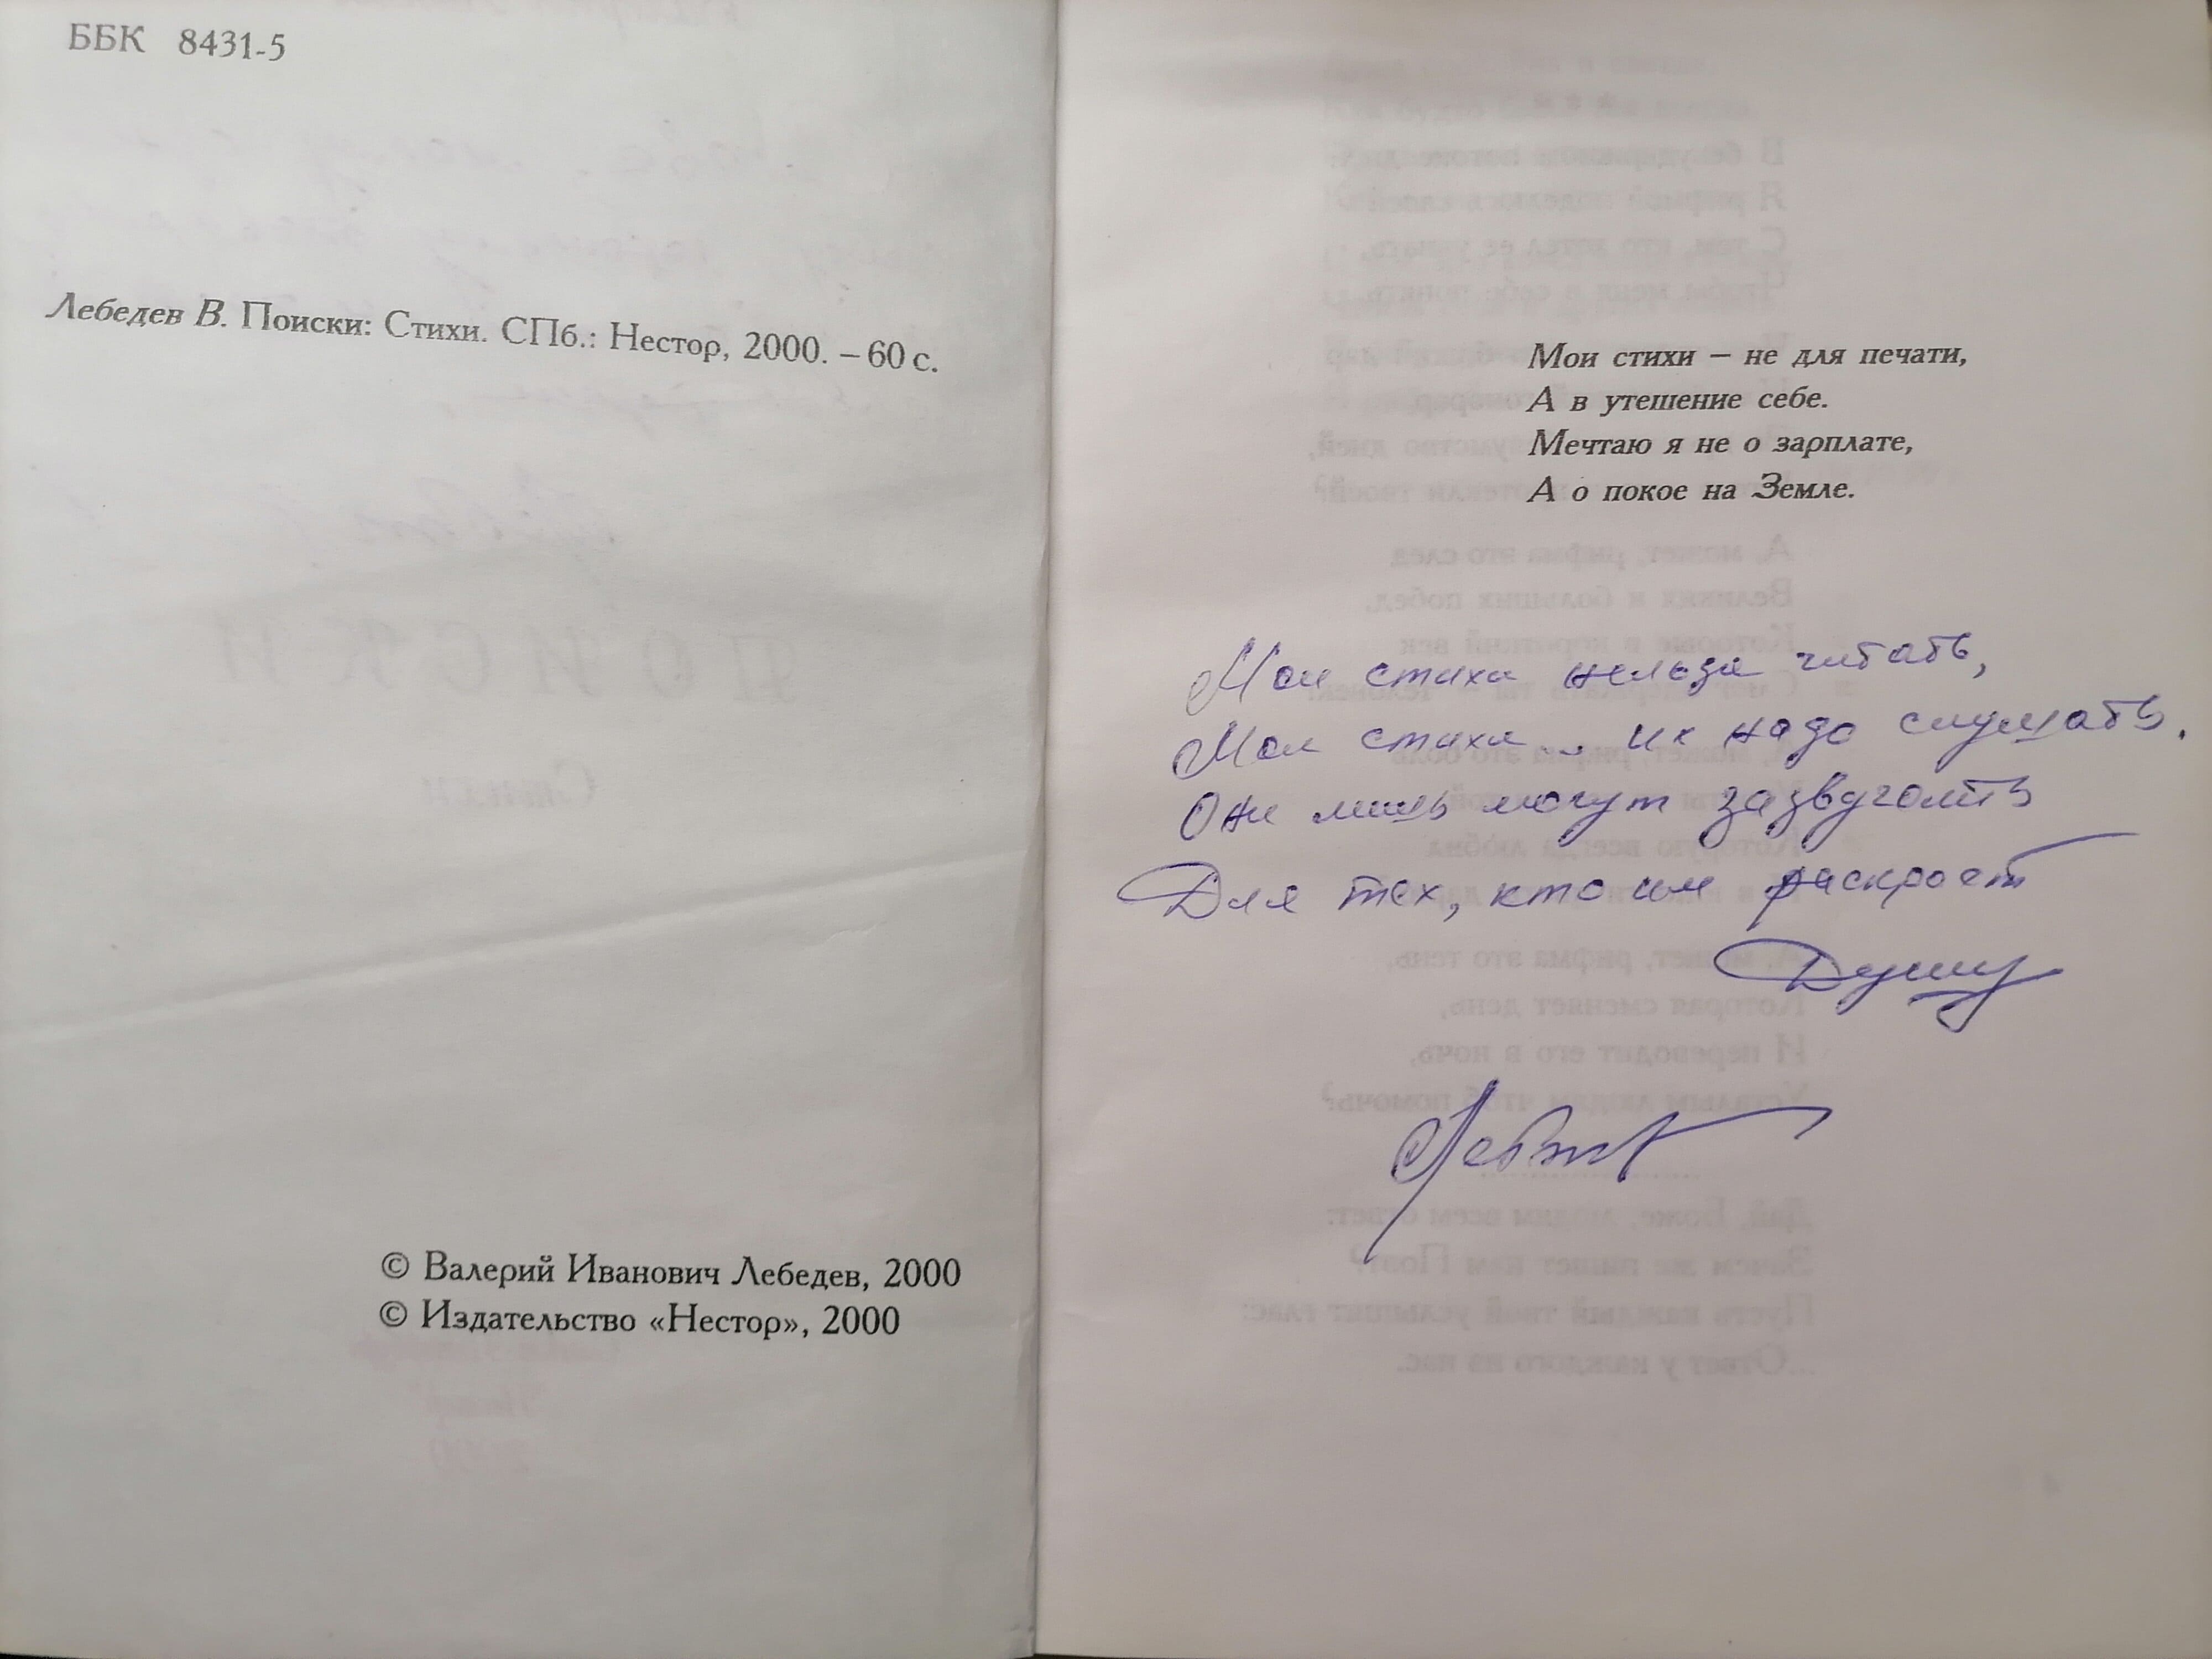 ББК 8431-5
Лебедев В. Поиски: Стихи. СПб.: Нестор, 2000. – 60 с.
© Валерий Иванович Лебедев, 2000
© Издательство «Нестор», 2000
Мои стихи – не для печати,
А в утешение себе.
Мечтаю я не о зарплате,
А о покое на Земле.
Мои стихи нельзя читать,
Мои стихи... их надо слушать.
Они лишь могут зазвучать
Для тех, кто им раскроет
Душу